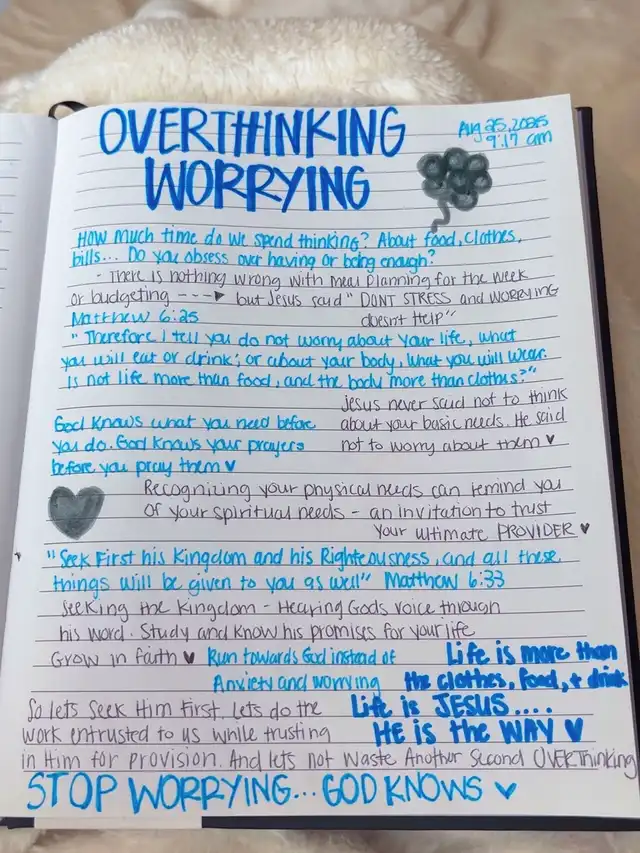 OVERTHINKING
WORRYING
Aug 25, 2025
9:17 am
How much time do we spend thinking? About food, clothes,
bills... Do you obsess over having or being enough?
- There is nothing wrong with meal planning for the week
or budgeting ---► but Jesus said "DONT STRESS and WORRYING
doesn't Help"
Matthew 6:25
"Therefore I tell you do not worry about your life, what
you will eat or drink; or about your body, what you will wear.
Is not life more than food, and the body more than clothes?"
Jesus never said not to think
about your basic needs. He said
not to worry about them ♥
God knows what you need before
you do. God knows your prayers
before you pray them ♥
Recognizing your physical needs can remind you
of your spiritual needs - an invitation to trust
your ultimate PROVIDER ♥
"Seek First his Kingdom and his Righteousness, and all these
things will be given to you as well" Matthew 6:33
Seeking the Kingdom - Hearing Gods voice through
his word. Study and know his promises for your life
Grow in faith ♥ Run towards God instead of
Anxiety and worrying
Life is more than
the clothes, food, + drink
Life is JESUS....
HE is the WAY ♥
So lets seek Him first. Lets do the
work entrusted to us while trusting
in Him for provision. And lets not waste Another Second OVERThinking
STOP WORRYING... GOD KNOWS ♥